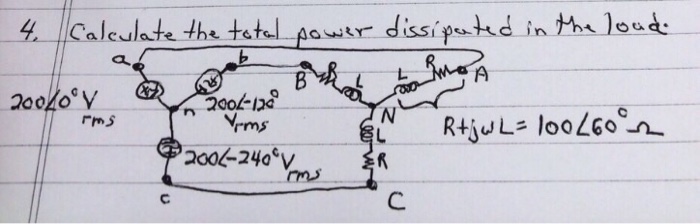 4. Calculate the total power dissipated in the load.
a
b
B
R
L
L
R
A
200∠0° V
rms
n
200∠-120°
Vrms
N
R+jωL = 100∠60° Ω
L
R
200∠-240° V
rms
c
C